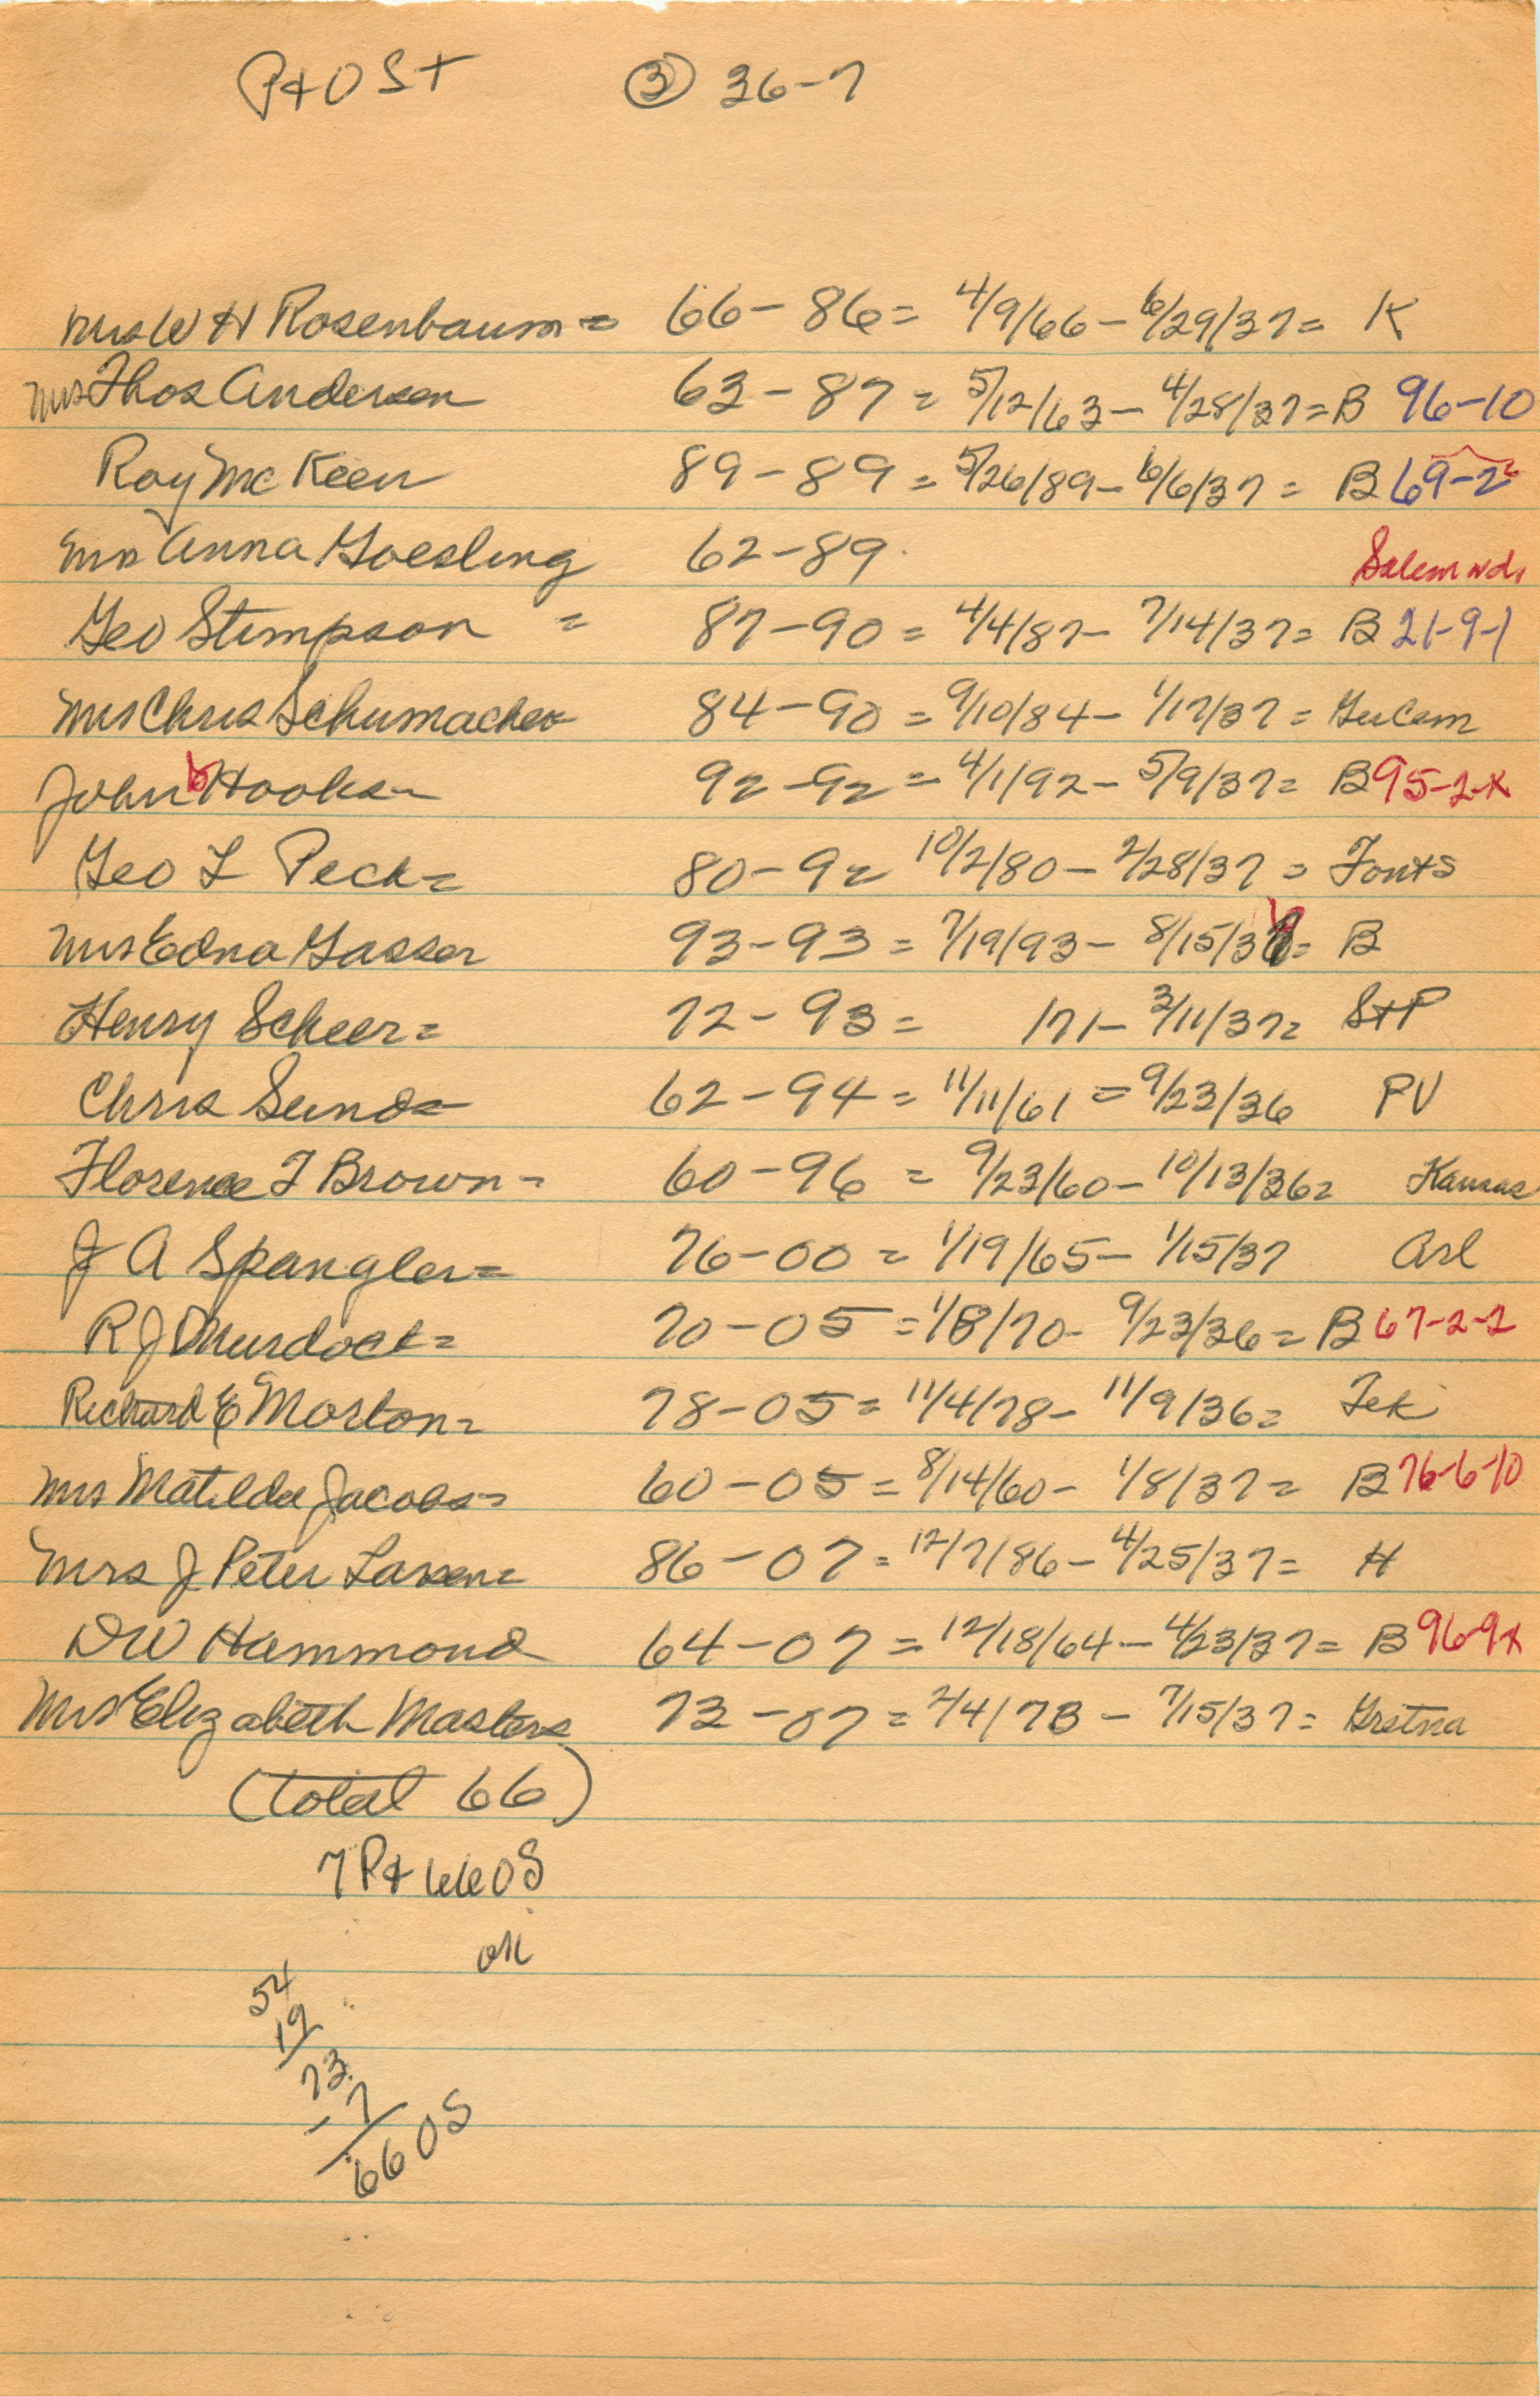 P+OST ③ 36-7
Mrs W H Rosenbaum = 66-86= 4/9/66-6/29/37= K
Mrs Thos Andersen 63-87= 5/12/63-4/28/37=B 96-10
Ray McKeen 89-89= 5/26/89-6/6/37= B 69-2
Mrs Anna Goesling 62-89 Salem
Geo Stimpson = 87-90= 4/4/87-7/14/37= B 21-9-1
Mrs Chris Schumacher 84-90=9/10/84-1/17/37=
John Hooks= 92-92=4/1/92-5/9/37= B 95-2-x
Geo L Peck= 80-92 10/2/80-2/28/37=
Mrs Edna Gasser 93-93=7/19/93-8/15/36= B
Henry Scheer= 72-93= 171-3/11/37= S+P
Chris Sund= 62-94=11/11/61=9/23/36 PV
Florence T Brown- 60-96=9/23/60-10/13/36= Kansas
J A Spangler= 76-00=1/19/65-1/15/37 Arl
R J Murdock= 70-05=1/8/70-9/23/36=B 67-2-2
Richard E Morton= 78-05=11/4/78-11/9/36= Tek
Mrs Matilda Jacobs= 60-05=8/14/60-1/8/37= B 76-6-10
Mrs J Peter Larsen= 86-07=12/7/86-4/25/37= H
D W Hammond 64-07=12/18/64-4/23/37= B 96-9x
Mrs Elizabeth Masters 73-07=2/4/73-7/15/37= Gretna
(total 66)
7P+66OS
OK
54
19
73
-7
66OS